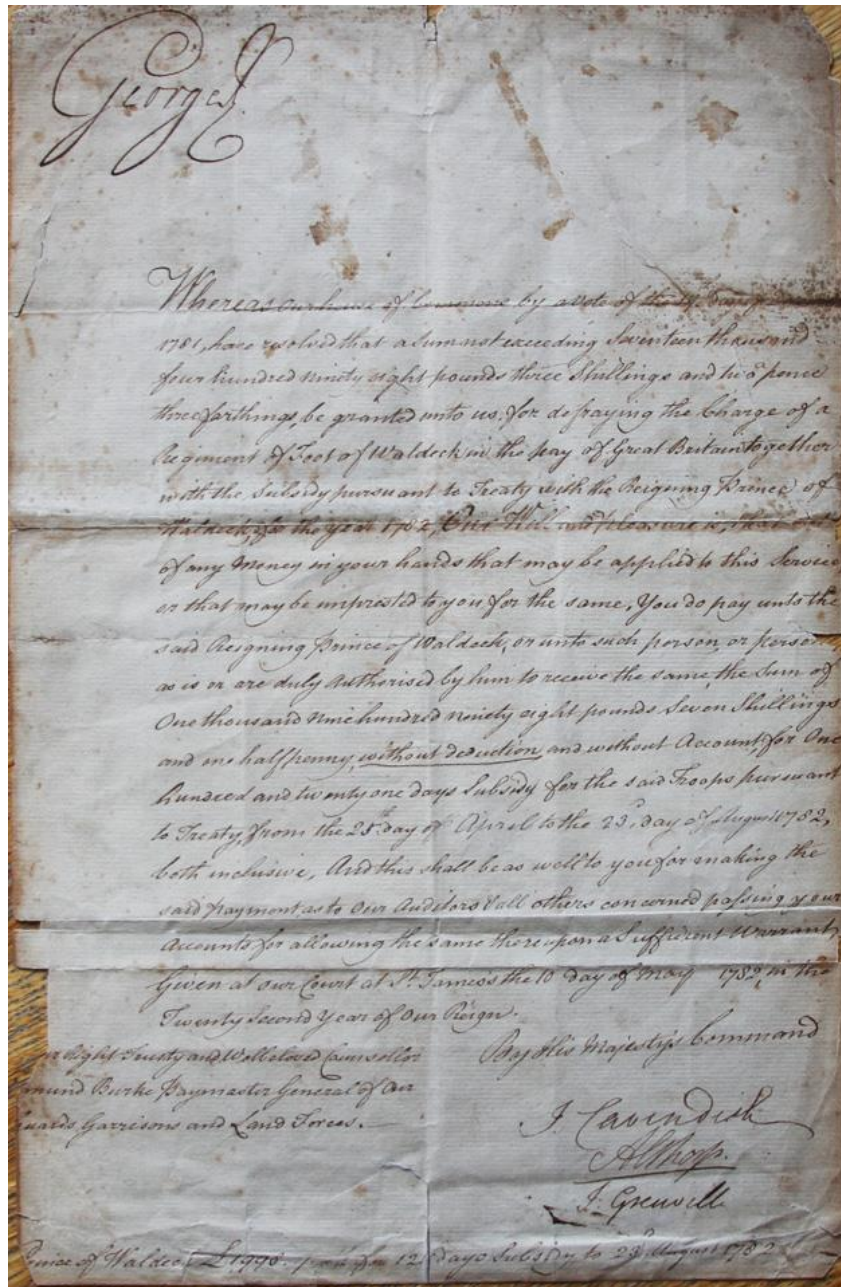 George R.
Whereas our house of Commons by a Vote of the day of
1781, have resolved that a Sum not exceeding Seventeen thousand
four hundred ninety eight pounds three Shillings and two pence
three farthings, be granted unto us, for defraying the Charge of a
Regiment of Foot of Waldeck in the pay of Great Britain together
with the Subsidy pursuant to Treaty with the Reigning Prince of
Waldeck, for the year 1782, Our Will and pleasure is, that out
of any Money in your hands that may be applied to this Service
or that may be imprested to you for the same, You do pay unto the
said Reigning Prince of Waldeck, or unto such person, or persons
as is or are duly Authorised by him to receive the same, the Sum of
One thousand nine hundred ninety eight pounds Seven Shillings
and one halfpenny, without deduction, and without Account, for One
hundred and twenty one days Subsidy for the said Troops pursuant
to Treaty, from the 25th. day of April to the 23d. day of August 1782,
both inclusive, And this shall be as well to you for making the
said payment as to Our Auditors & all others concerned passing your
Accounts for allowing the same thereupon a Sufficient Warrant,
Given at our Court at St. James's the 10 day of May 1782, in the
Twenty Second Year of Our Reign.
By His Majesty's Command
Right Trusty and Wellbeloved Counsellor
mund Burke Paymaster General of our
uards Garrisons and Land Forces.
J. Cavendish
Althorp.
J. Grenville
Prince of Waldeck £1998. for 121 days Subsidy to 23d August 1782